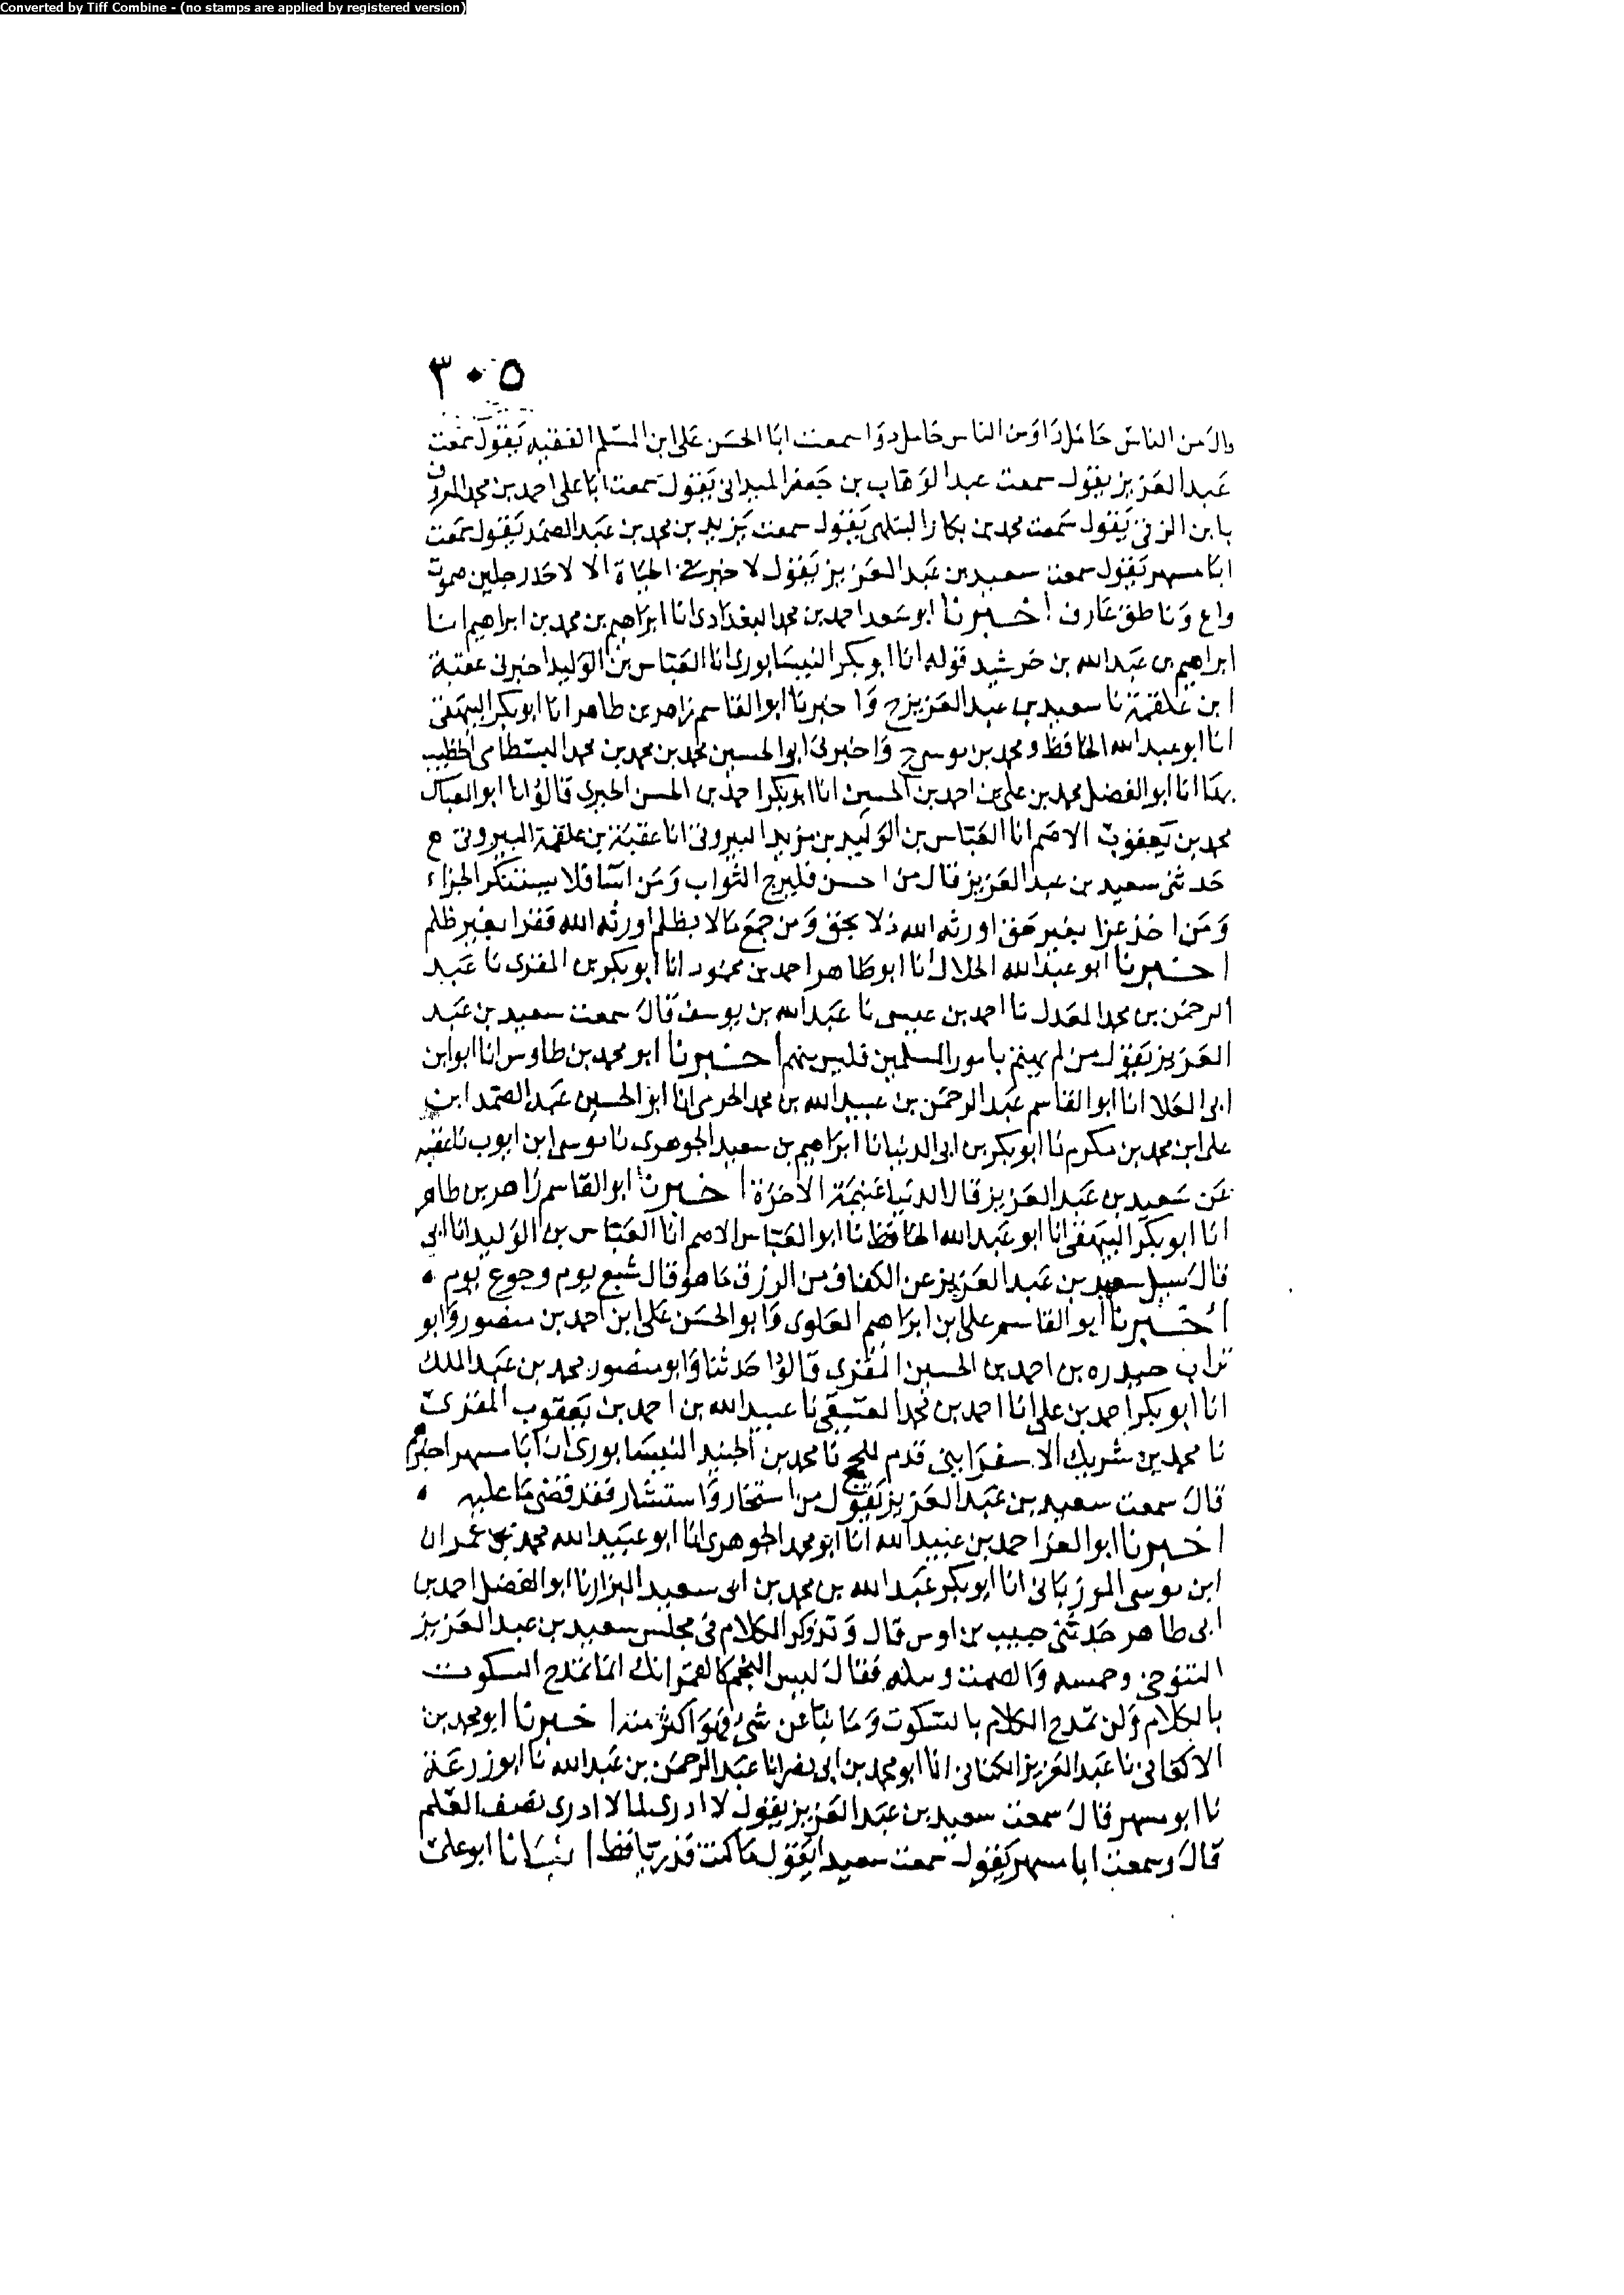 Converted by Tiff Combine - (no stamps are applied by registered version)
٣٠٥
من الناس حامل داء ومن الناس حامل دوا سمعت ابا الحسن على ابن المسلم الفقيه يقول سمعت
عبد العزيز يقول سمعت عبد الوهاب بن جعفر الميدانى يقول سمعت ابا على احمد بن محمد المعروف
بابن الزفتى يقول سمعت محمد بن بكار البتلهى يقول سمعت يزيد بن محمد بن عبد الصمد يقول سمعت
ابا مسهر يقول سمعت سعيد بن عبد العزيز يقول لا خير فى الحياة الا لاحد رجلين صموت
واع وناطق عارف اخبرنا ابو سعد احمد بن محمد البغدادى انا ابراهيم بن محمد بن ابراهيم انا
ابراهيم بن عبد الله بن خرشيد قوله انا ابو بكر النيسابورى انا العباس بن الوليد اخبرنى عقبة
ابن علقمة نا سعيد بن عبد العزيز ح واخبرنا ابو القاسم زاهر بن طاهر انا ابو بكر البيهقى
انا ابو عبد الله الحافظ ومحمد بن موسى ح واخبرنى ابو الحسين محمد بن محمد بن محمد البسطامى الخطيب
بها انا ابو الفضل محمد بن على بن احمد بن الحسين انا ابو بكر احمد بن الحسن الحيرى قالوا انا ابو العباس
محمد بن يعقوب الاصم انا العباس بن الوليد بن مزيد البيروتى انا عقبة بن علقمة البيروتى
حدثنى سعيد بن عبد العزيز قال من احسن فليرج الثواب ومن اسا فلا يستنكر الجزاء
ومن اخذ عزا بغير حق اورثه الله ذلا بحق ومن جمع مالا بظلم اورثه الله فقرا بغير ظلم
اخبرنا ابو عبد الله الخلال انا ابو طاهر احمد بن محمود انا ابو بكر بن المقرى نا عبد
الرحمن بن محمد المعدل نا احمد بن عيسى نا عبد الله بن يوسف قال سمعت سعيد بن عبد
العزيز يقول من لم يهتم بامور المسلمين فليس منهم اخبرنا ابو محمد بن طاوس انا ابو ابن
ابى العلا انا ابو القاسم عبد الرحمن بن عبيد الله بن محمد الحرمى انا ابو الحسين عبد الصمد ابن
على ابن محمد بن مكرم نا ابو بكر بن ابى الدنيا نا ابراهيم بن سعيد الجوهرى نا موسى ابن ايوب نا عقبه
عن سعيد بن عبد العزيز قال الدنيا غنيمة الاخرة اخبرنا ابو القاسم زاهر بن طاهر
انا ابو بكر البيهقى انا ابو عبد الله الحافظ نا ابو العباس الاصم انا العباس بن الوليد انا ابى
قال سيل سعيد بن عبد العزيز عن الكفاف من الرزق ما هو قال شبع يوم وجوع يوم
اخبرنا ابو القاسم على ابن ابراهيم العلوى وابو الحسن على ابن احمد بن منصور وابو
تراب حيدره بن احمد بن الحسين المقرى قالوا حدثنا وابو منصور محمد بن عبد الملك
انا ابو بكر احمد بن على انا احمد بن محمد العتيقى نا عبيد الله بن احمد بن يعقوب المقرى
نا محمد بن شريك الاسفراينى قدم للحج نا محمد بن الجنيد النيسابورى ان ابا مسهر اخبرهم
قال سمعت سعيد بن عبد العزيز يقول من استخار واستشار فقد قضى ما عليه
اخبرنا ابو العز احمد بن عبيد الله انا ابو محمد الجوهرى انا ابو عبيد الله محمد بن عمران
ابن موسى المرزبانى انا ابو بكر عبد الله بن محمد بن ابى سعيد البزار نا ابو الفضل احمد بن
ابى طاهر حدثنى حبيب بن اوس قال وتذوكر الكلام فى مجلس سعيد بن عبد العزيز
التنوخى وحسنه والصمت ونبله فقال ليس النجم كالقمر انك انما تمدح السكوت
بالكلام ولن تمدح الكلام بالسكوت وما نبا عن شىء فهو اكثر منه اخبرنا ابو محمد بن
الاكفانى نا عبد العزيز الكتانى انا ابو محمد بن ابى نصر انا عبد الرحمن بن عبد الله نا ابو زرعة
نا ابو مسهر قال سمعت سعيد بن عبد العزيز يقول لا ادرى لما لا ادرى نصف العلم
قال وسمعت ابا مسهر يقول سمعت سعيدا يقول ما كنت قدريا قط انبانا ابو على